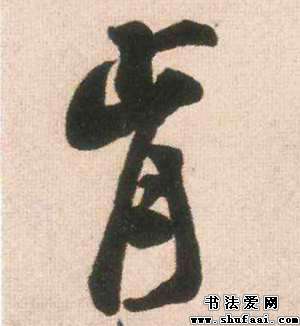 肯
书法爱网
www.shufaai.com